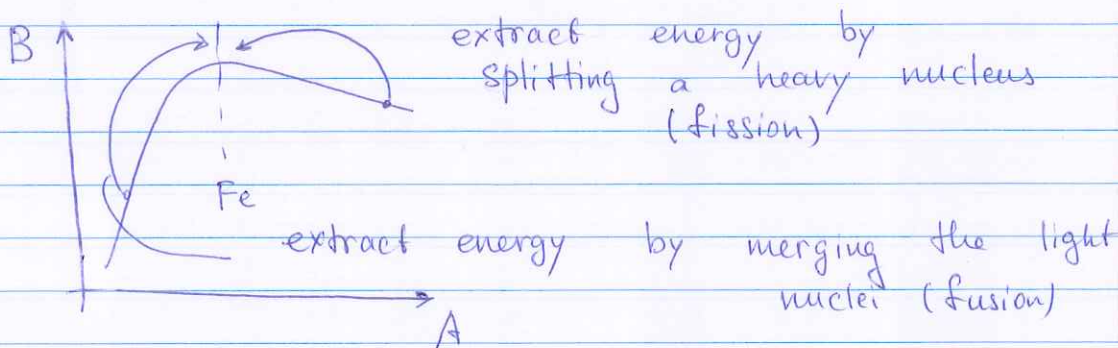 B
extract energy by
splitting a heavy nucleus
(fission)
Fe
extract energy by merging the light
nuclei (fusion)
A